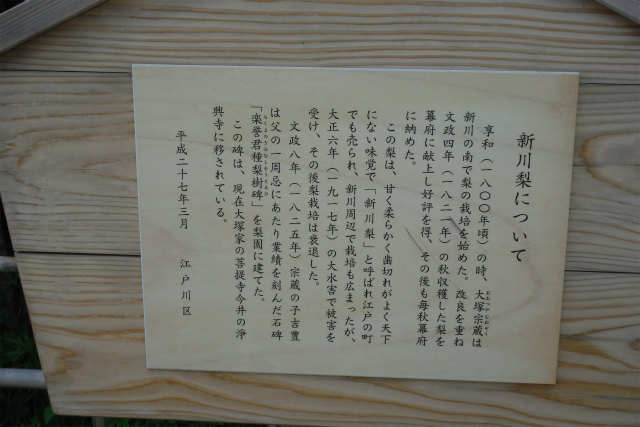 新川梨について
享和（一八〇〇年頃）の時、大塚宗蔵は
新川の南で梨の栽培を始めた。改良を重ね
文政四年（一八二一年）の秋収穫した梨を
幕府に献上し好評を得、その後も毎秋幕府
に納めた。
この梨は、甘く柔らかく歯切れがよく天下
にない味覚で「新川梨」と呼ばれ江戸の町
でも売られ、新川周辺で栽培も広まったが、
大正六年（一九一七年）の大水害で被害を
受け、その後梨栽培は衰退した。
文政八年（一八二五年）宗蔵の子吉豊
は父の一周忌にあたり業績を刻んだ石碑
「楽誉君種梨樹碑」を梨園に建てた。
この碑は、現在大塚家の菩提寺今井の浄
興寺に移されている。
平成二十七年三月　江戸川区